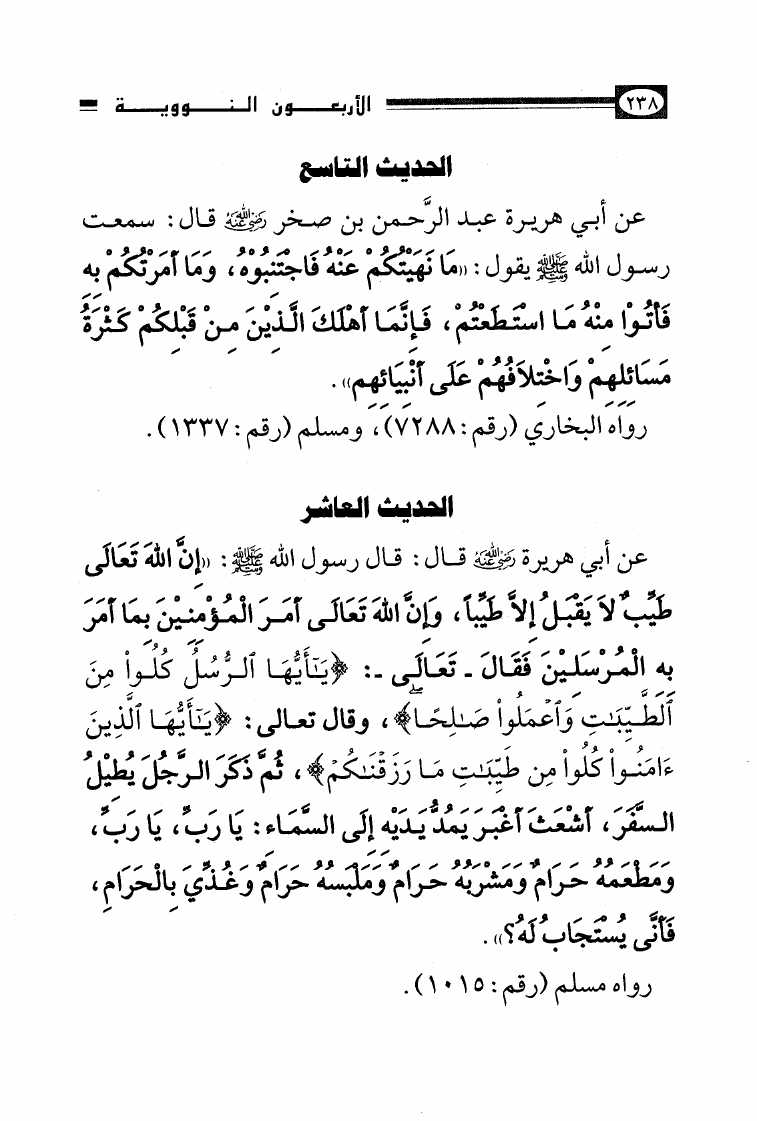 ٢٣٨ الأربعـــون النـــوويـــة
الحديث التاسع
عن أبي هريرة عبد الرَّحمن بن صخر رضي الله عنه قال: سمعت
رسول الله ﷺ يقول: «مَا نَهَيْتُكُمْ عَنْهُ فَاجْتَنِبُوْهُ، وَمَا أَمَرْتُكُمْ بِهِ
فَأْتُوْا مِنْهُ مَا اسْتَطَعْتُمْ، فَإِنَّمَا أَهْلَكَ الَّذِيْنَ مِنْ قَبْلِكُمْ كَثْرَةُ
مَسَائِلِهِمْ وَاخْتِلَافُهُمْ عَلَى أَنْبِيَائِهِم».
رواه البخاري (رقم: ٧٢٨٨)، ومسلم (رقم: ١٣٣٧).
الحديث العاشر
عن أبي هريرة رضي الله عنه قال: قال رسول الله ﷺ: «إِنَّ اللهَ تَعَالَى
طَيِّبٌ لاَ يَقْبَلُ إِلاَّ طَيِّباً، وَإِنَّ اللهَ تَعَالَى أَمَرَ الْمُؤْمِنِيْنَ بِمَا أَمَرَ
بِهِ الْمُرْسَلِيْنَ فَقَالَ - تَعَالَى -: ﴿يَٰٓأَيُّهَا ٱلرُّسُلُ كُلُوا۟ مِنَ
ٱلطَّيِّبَٰتِ وَٱعْمَلُوا۟ صَٰلِحًا﴾، وقال تعالى: ﴿يَٰٓأَيُّهَا ٱلَّذِينَ
ءَامَنُوا۟ كُلُوا۟ مِن طَيِّبَٰتِ مَا رَزَقْنَٰكُمْ﴾، ثُمَّ ذَكَرَ الرَّجُلَ يُطِيْلُ
السَّفَرَ، أَشْعَثَ أَغْبَرَ يَمُدُّ يَدَيْهِ إِلَى السَّمَاءِ: يَا رَبِّ، يَا رَبِّ،
وَمَطْعَمُهُ حَرَامٌ وَمَشْرَبُهُ حَرَامٌ وَمَلْبَسُهُ حَرَامٌ وَغُذِّيَ بِالْحَرَامِ،
فَأَنَّى يُسْتَجَابُ لَهُ؟».
رواه مسلم (رقم: ١٠١٥).